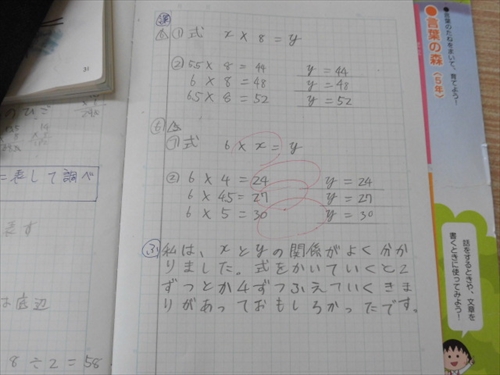 練
① 式 x × 8 = y
② 5.5 × 8 = 44 y = 44
6 × 8 = 48 y = 48
6.5 × 8 = 52 y = 52
⑥
① 式 6 × x = y
② 6 × 4 = 24 y = 24
6 × 4.5 = 27 y = 27
6 × 5 = 30 y = 30
ふ 私は、xとyの関係がよく分か
りました。式をかいていくと2
ずつとか4ずつふえていくきま
りがあっておもしろかったです。
=表して調べ
表す
底辺
8 ÷ 2 = 56
●言葉のたねをまいて、育てよう!
●言葉の森(5年)
話をするときや、文章を
書くときに使ってみよう!